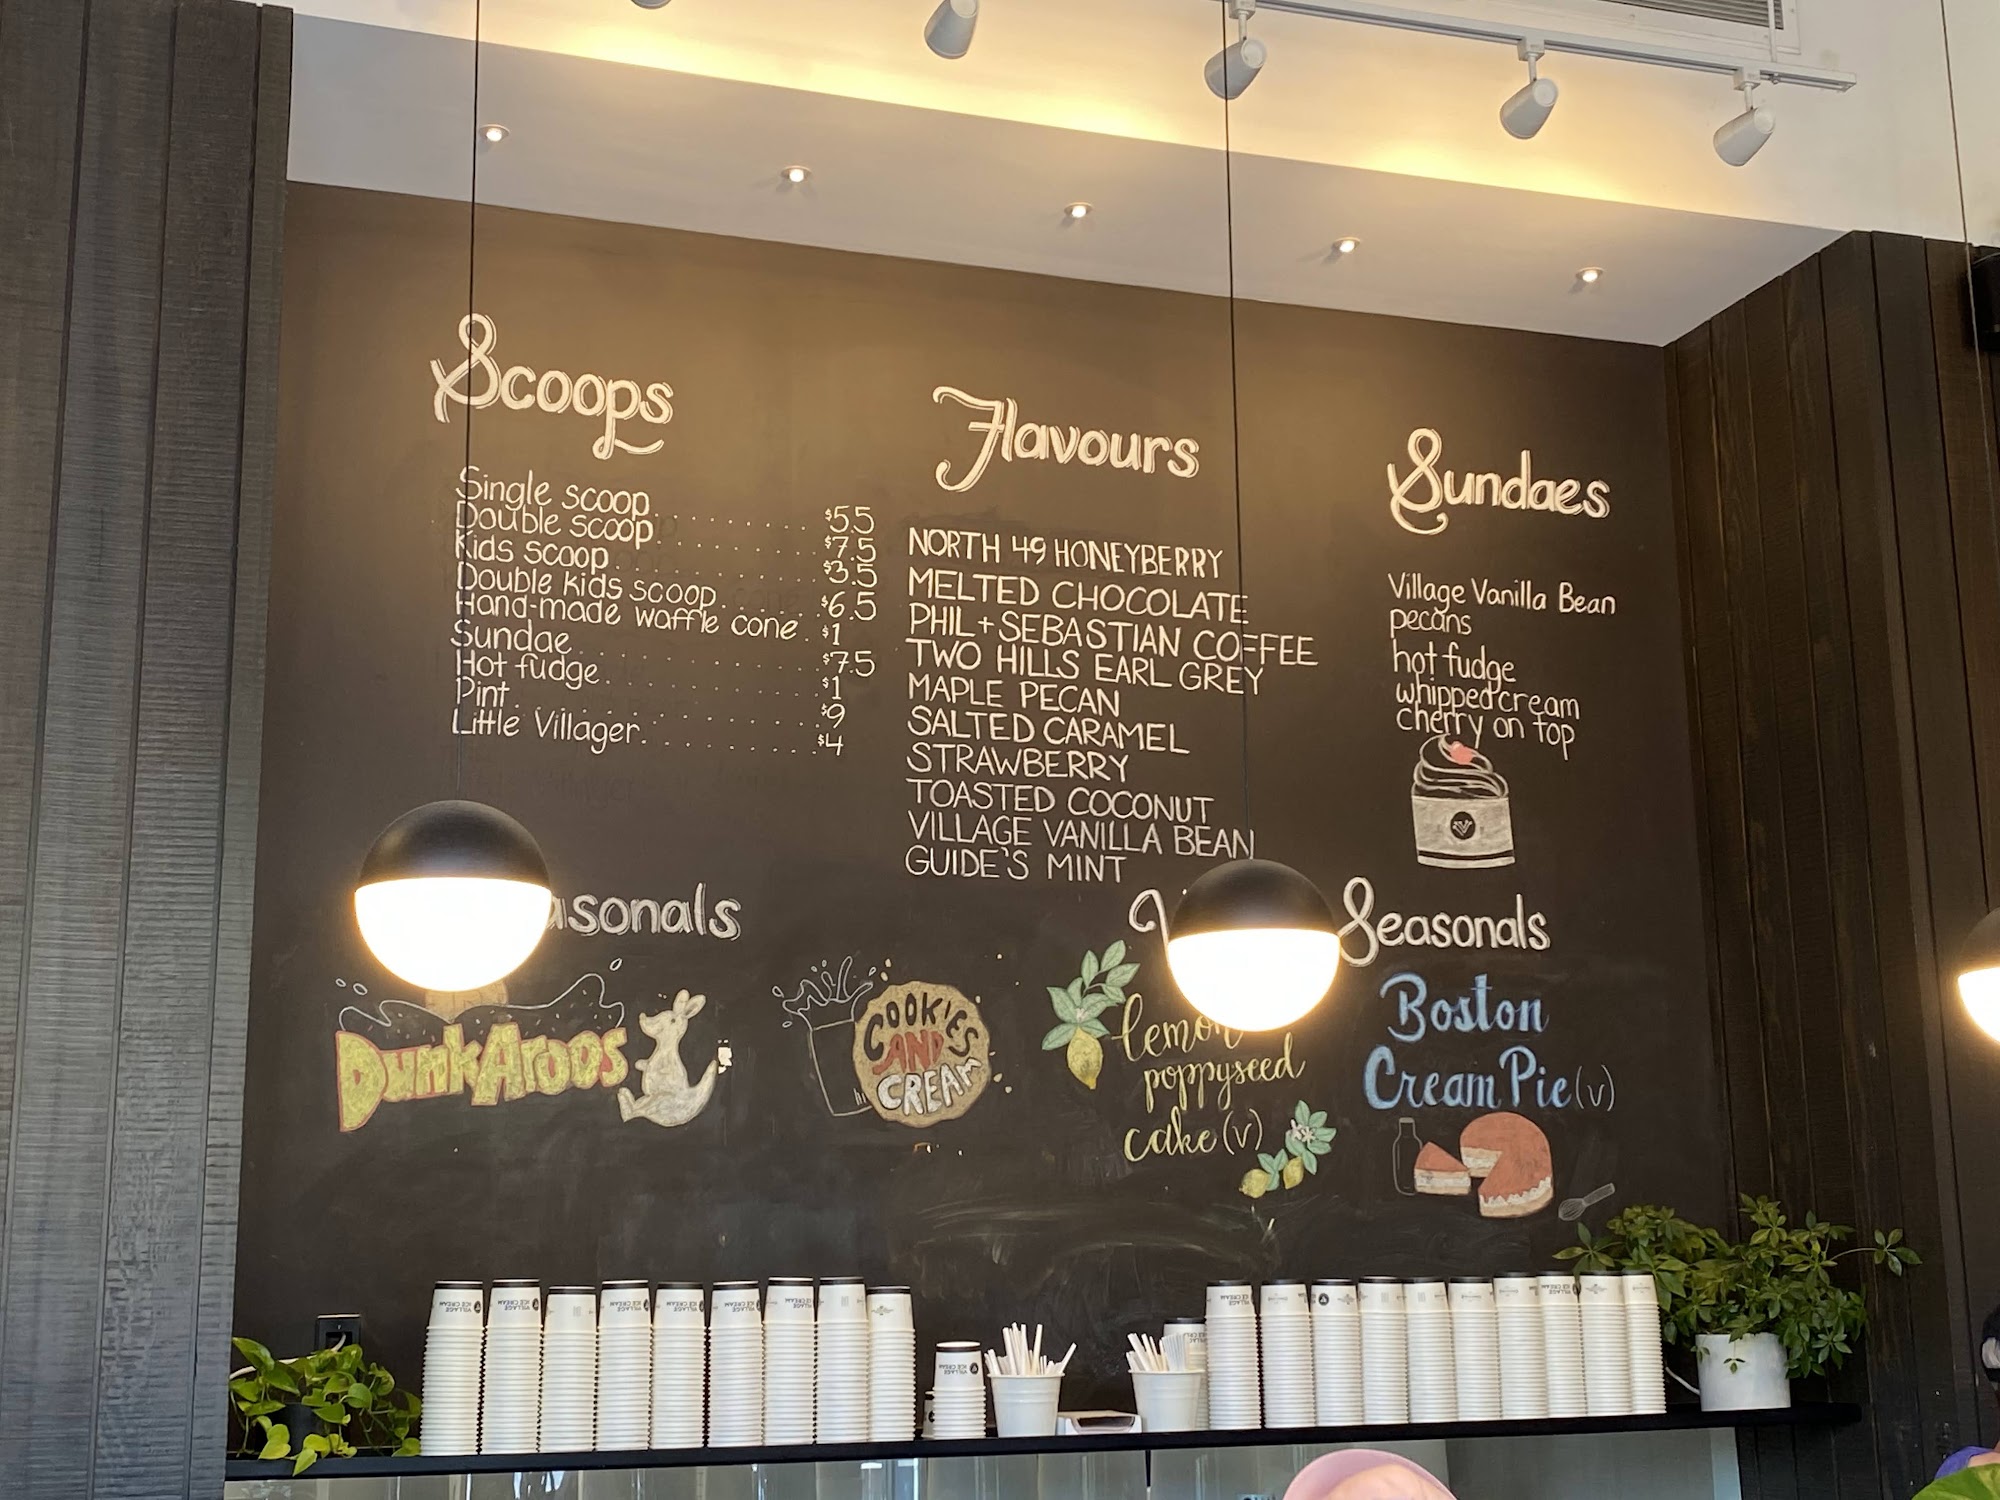 Scoops
Single scoop . . . . . . . . . . $5.5
Double scoop . . . . . . . . . . $7.5
Kids scoop . . . . . . . . . . . . $3.5
Double kids scoop . . . . . . . $6.5
Hand-made waffle cone . $1
Sundae . . . . . . . . . . . . . $7.5
Hot fudge . . . . . . . . . . . $1
Pint . . . . . . . . . . . . . . . $9
Little Villager . . . . . . . . . $4
Flavours
NORTH 49 HONEYBERRY
MELTED CHOCOLATE
PHIL + SEBASTIAN COFFEE
TWO HILLS EARL GREY
MAPLE PECAN
SALTED CARAMEL
STRAWBERRY
TOASTED COCONUT
VILLAGE VANILLA BEAN
GUIDE'S MINT
Sundaes
Village Vanilla Bean
pecans
hot fudge
whipped cream
cherry on top
asonals
DunkAroos
COOKIES
AND
CREAM
Seasonals
lemon
poppyseed
cake (v)
Boston
Cream Pie (v)
VILLAGE
ICE CREAM